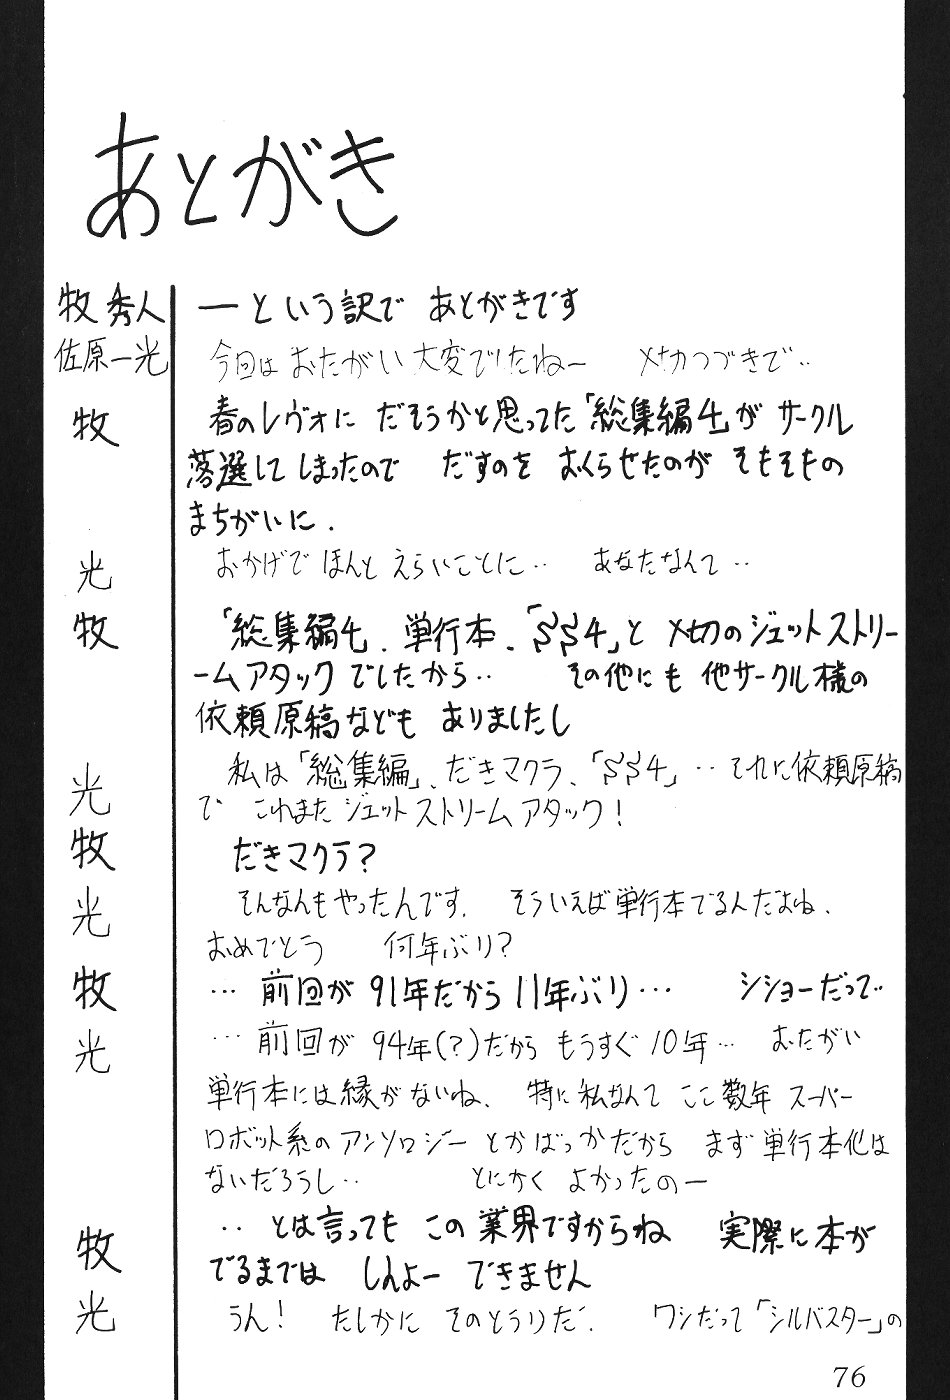 あとがき
牧 秀人 ーという訳で あとがきです
佐原一光 今回は おたがい 大変でしたねー 〆切つづきで‥
牧 春のレヴォに だそうかと思ってた「総集編4」が サークル
落選して しまったので だすのを おくらせたのが そもそもの
まちがいに.
光 おかげで ほんと えらいことに‥ あなたなんて‥
牧 「総集編4」、単行本、「SS4」と 〆切のジェットストリー
ームアタック でしたから‥ その他にも 他サークル様の
依頼原稿なども ありましたし
光 私は「総集編」、だきマクラ、「SS4」‥それに依頼原稿
で これまた ジェットストリームアタック!
牧 だきマクラ?
光 そんなんもやったんです. そういえば単行本でるんだよね.
おめでとう 何年ぶり?
牧 … 前回が 91年だから 11年ぶり… シショーだって‥
光 … 前回が 94年(?)だから もうすぐ 10年… おたがい
単行本には縁がないね. 特に私なんて ここ数年 スーパー
ロボット系のアンソロジー とかばっかだから まず単行本化は
ないだろうし‥ とにかく よかったのー
牧 ‥ とは言っても この業界ですからね 実際に本が
でるまでは しんよー できません
光 うん! たしかに そのとうりだ. ワシだって「シルバスター」の
76